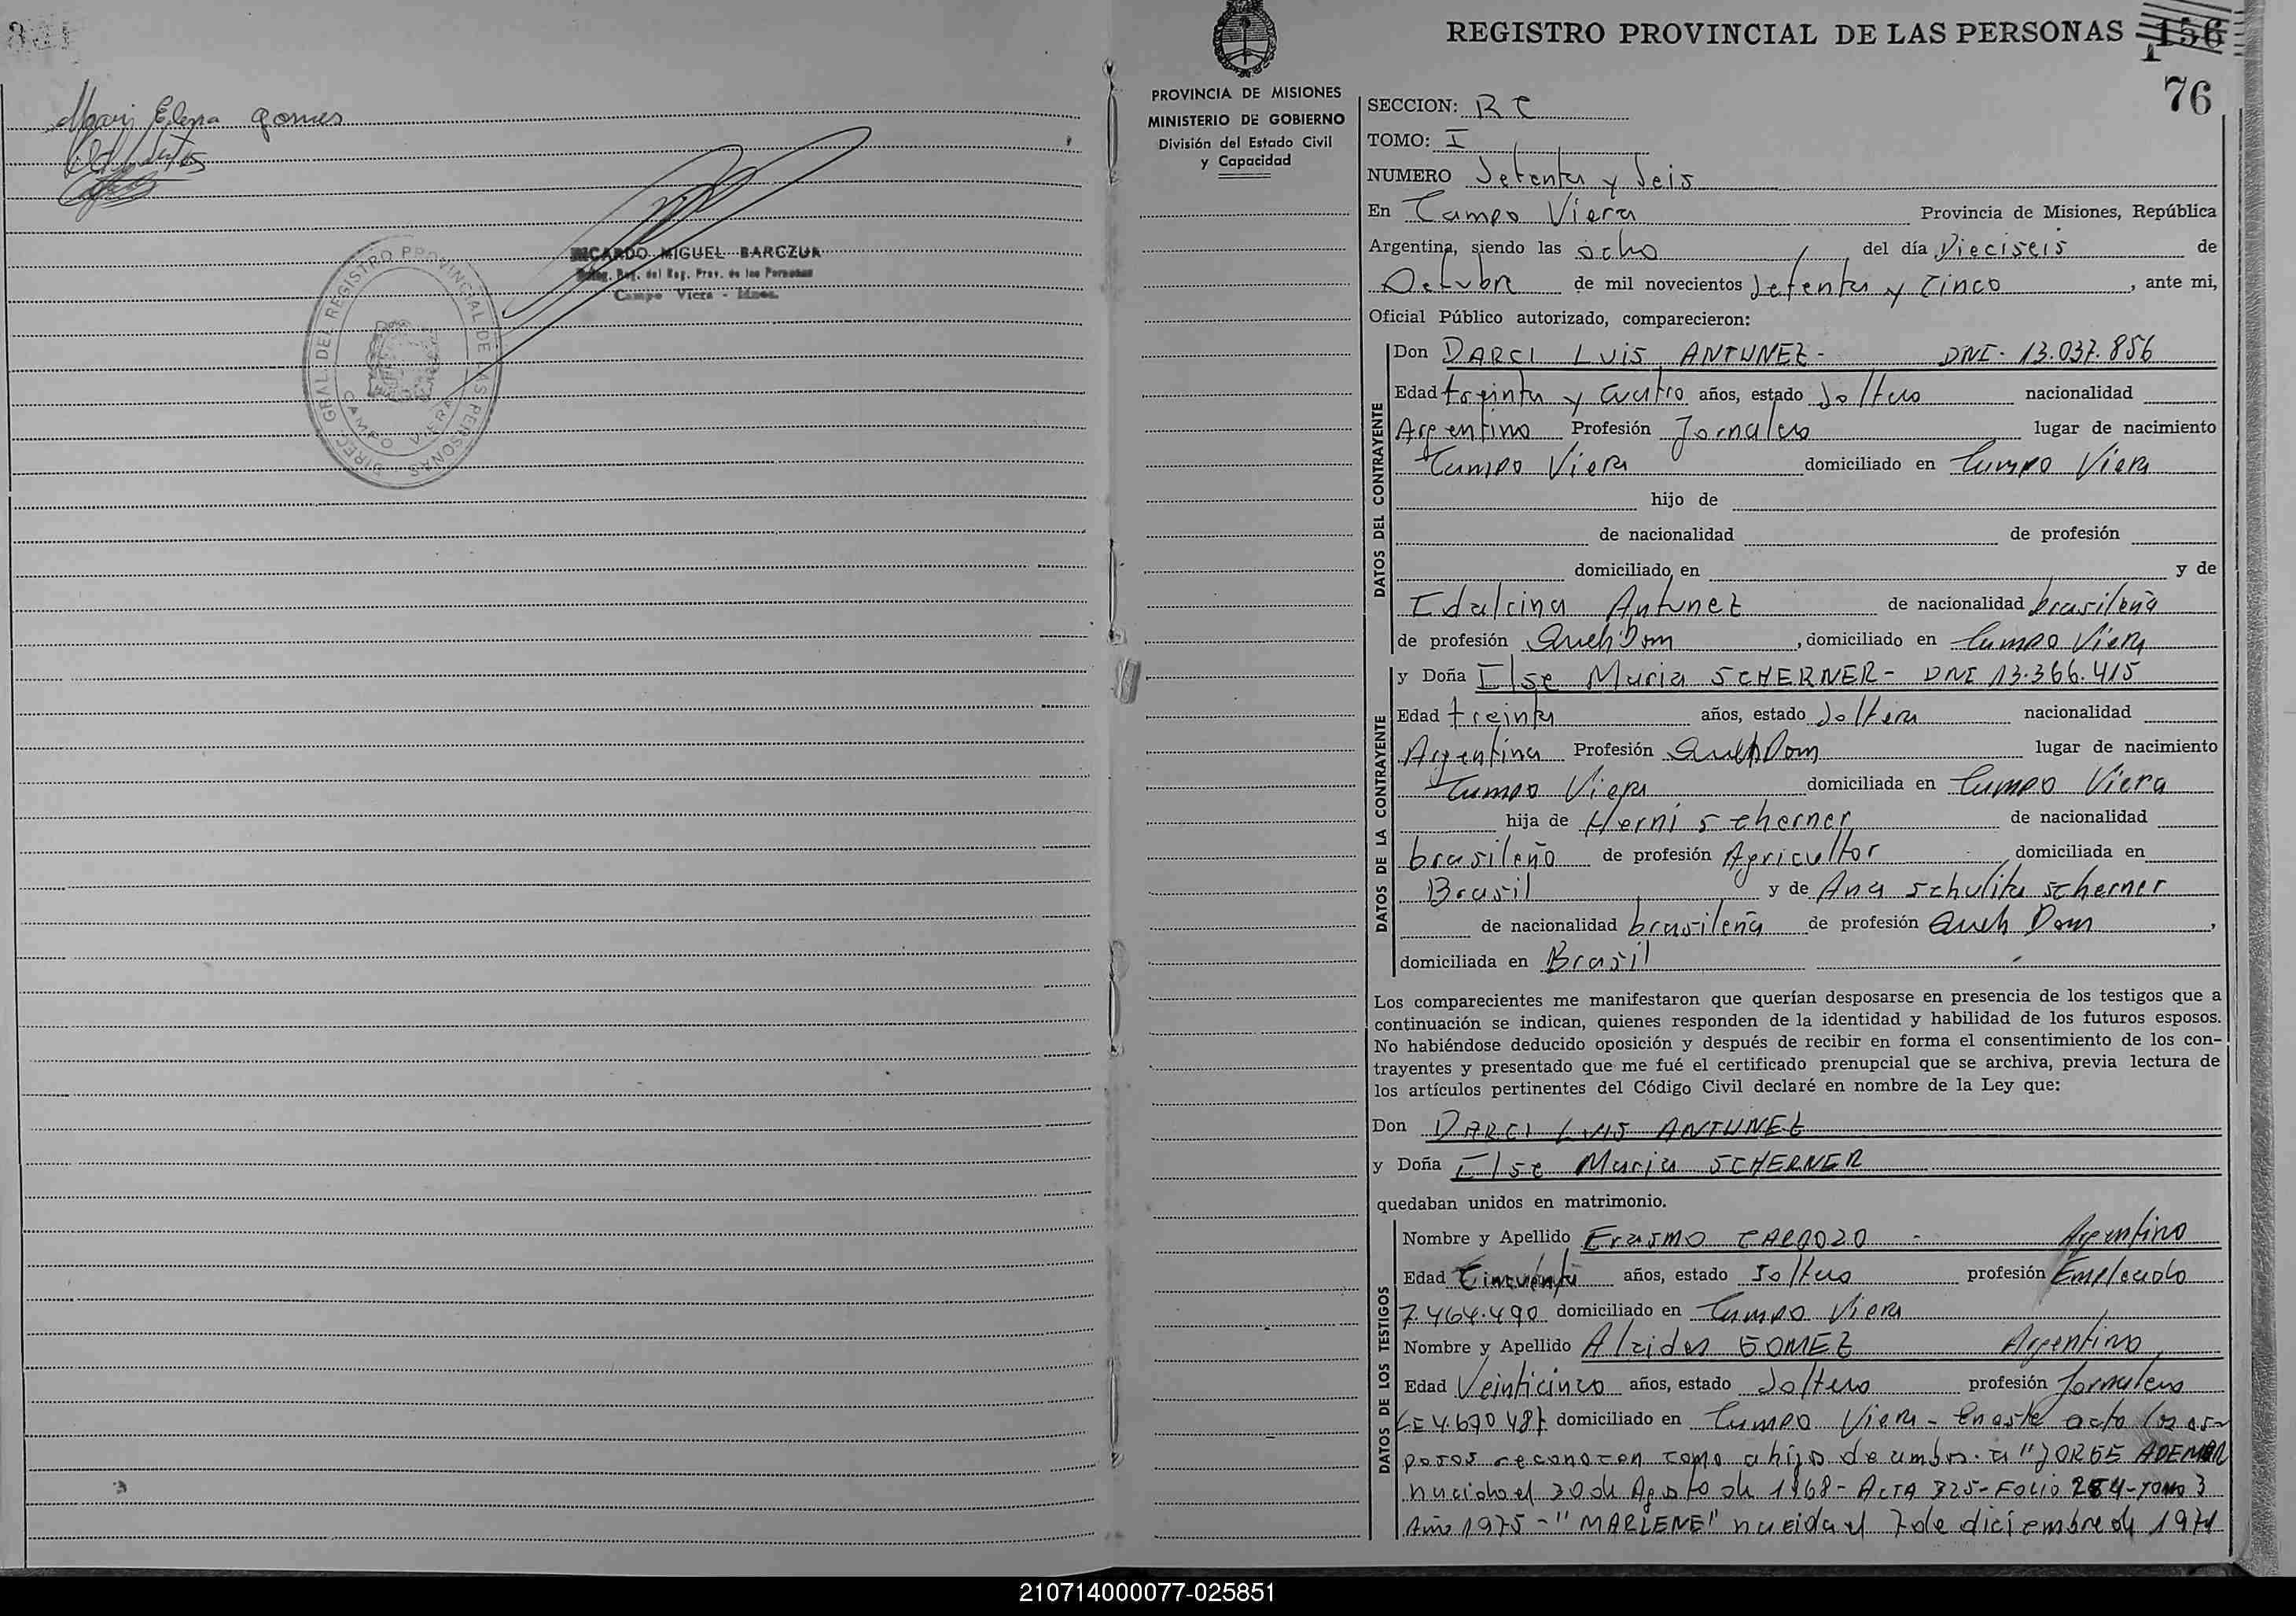 331
Mary Elena Gomes
RICARDO MIGUEL BARCZUK
Deleg. Reg. del Reg. Prov. de las Personas
Campo Viera - Mnes.
DIREC. GRAL. DEL REGISTRO PROVINCIAL DE LAS PERSONAS
CAMPO VIERA
REGISTRO PROVINCIAL DE LAS PERSONAS 156
76
PROVINCIA DE MISIONES
MINISTERIO DE GOBIERNO
División del Estado Civil
y Capacidad
SECCION: R C
TOMO: I
NUMERO Setenta y Seis
En Campo Viera Provincia de Misiones, República
Argentina, siendo las ocho del día Dieciseis de
Octubre de mil novecientos Setenta y Cinco, ante mi,
Oficial Público autorizado, comparecieron:
DATOS DEL CONTRAYENTE
Don DARCI LUIS ANTUNEZ- DNI- 13.037.856
Edad treinta y cuatro años, estado Soltero nacionalidad
Argentino Profesión Jornalero lugar de nacimiento
Campo Viera domiciliado en Campo Viera
hijo de
de nacionalidad de profesión
domiciliado en y de
Idalcina Antunez de nacionalidad brasileña
de profesión Queh Dom, domiciliado en Campo Viera
DATOS DE LA CONTRAYENTE
y Doña Ilse Maria SCHERNER- DNI 13.366.415
Edad treinta años, estado Soltera nacionalidad
Argentina Profesión Queh Dom lugar de nacimiento
Campo Viera domiciliada en Campo Viera
hija de Herni Scherner de nacionalidad
brasileño de profesión Agricultor domiciliada en
Brasil y de Ana Schulitz Scherner
de nacionalidad brasileña de profesión Queh Dom,
domiciliada en Brasil
Los comparecientes me manifestaron que querían desposarse en presencia de los testigos que a
continuación se indican, quienes responden de la identidad y habilidad de los futuros esposos.
No habiéndose deducido oposición y después de recibir en forma el consentimiento de los con-
trayentes y presentado que me fué el certificado prenupcial que se archiva, previa lectura de
los artículos pertinentes del Código Civil declaré en nombre de la Ley que:
Don DARCI LUIS ANTUNEZ
y Doña Ilse Maria SCHERNER
quedaban unidos en matrimonio.
DATOS DE LOS TESTIGOS
Nombre y Apellido Erasmo CARDOZO - Argentino
Edad Cincuenta años, estado Soltero profesión Empleado
7.464.490 domiciliado en Campo Viera
Nombre y Apellido Alcides GOMEZ Argentino
Edad Veinticinco años, estado Soltero profesión Jornalero
LE 4.670.487 domiciliado en Campo Viera - En este acto los es-
posos reconocen como a hijos de ambos a "JORGE ADEMAR
nacido el 30 de Agosto de 1968- ACTA 325- FOLIO 264- TOMO 3
Año 1975 -" MARLENE" nacida el 7 de diciembre de 1971
210714000077-025851